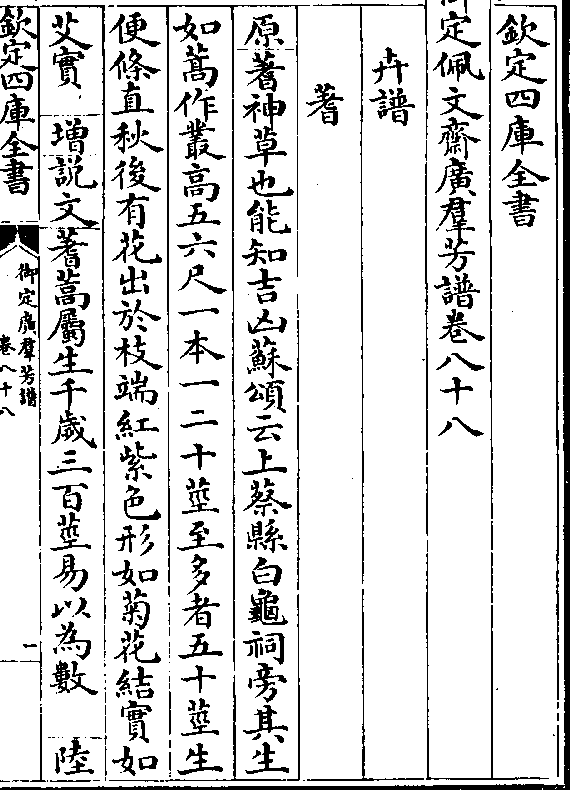 欽定四庫全書
御定佩文齋廣羣芳譜卷八十八
卉譜
蓍
原蓍神草也能知吉凶蘇頌云上蔡縣白龜祠旁其生
如蒿作叢高五六尺一本一二十莖至多者五十莖生
便條直秋後有花出於枝端紅紫色形如菊花結實如
艾實 增説文蓍蒿屬生千歲三百莖易以為數 陸
欽定四庫全書
御定廣羣芳譜
卷八十八
一